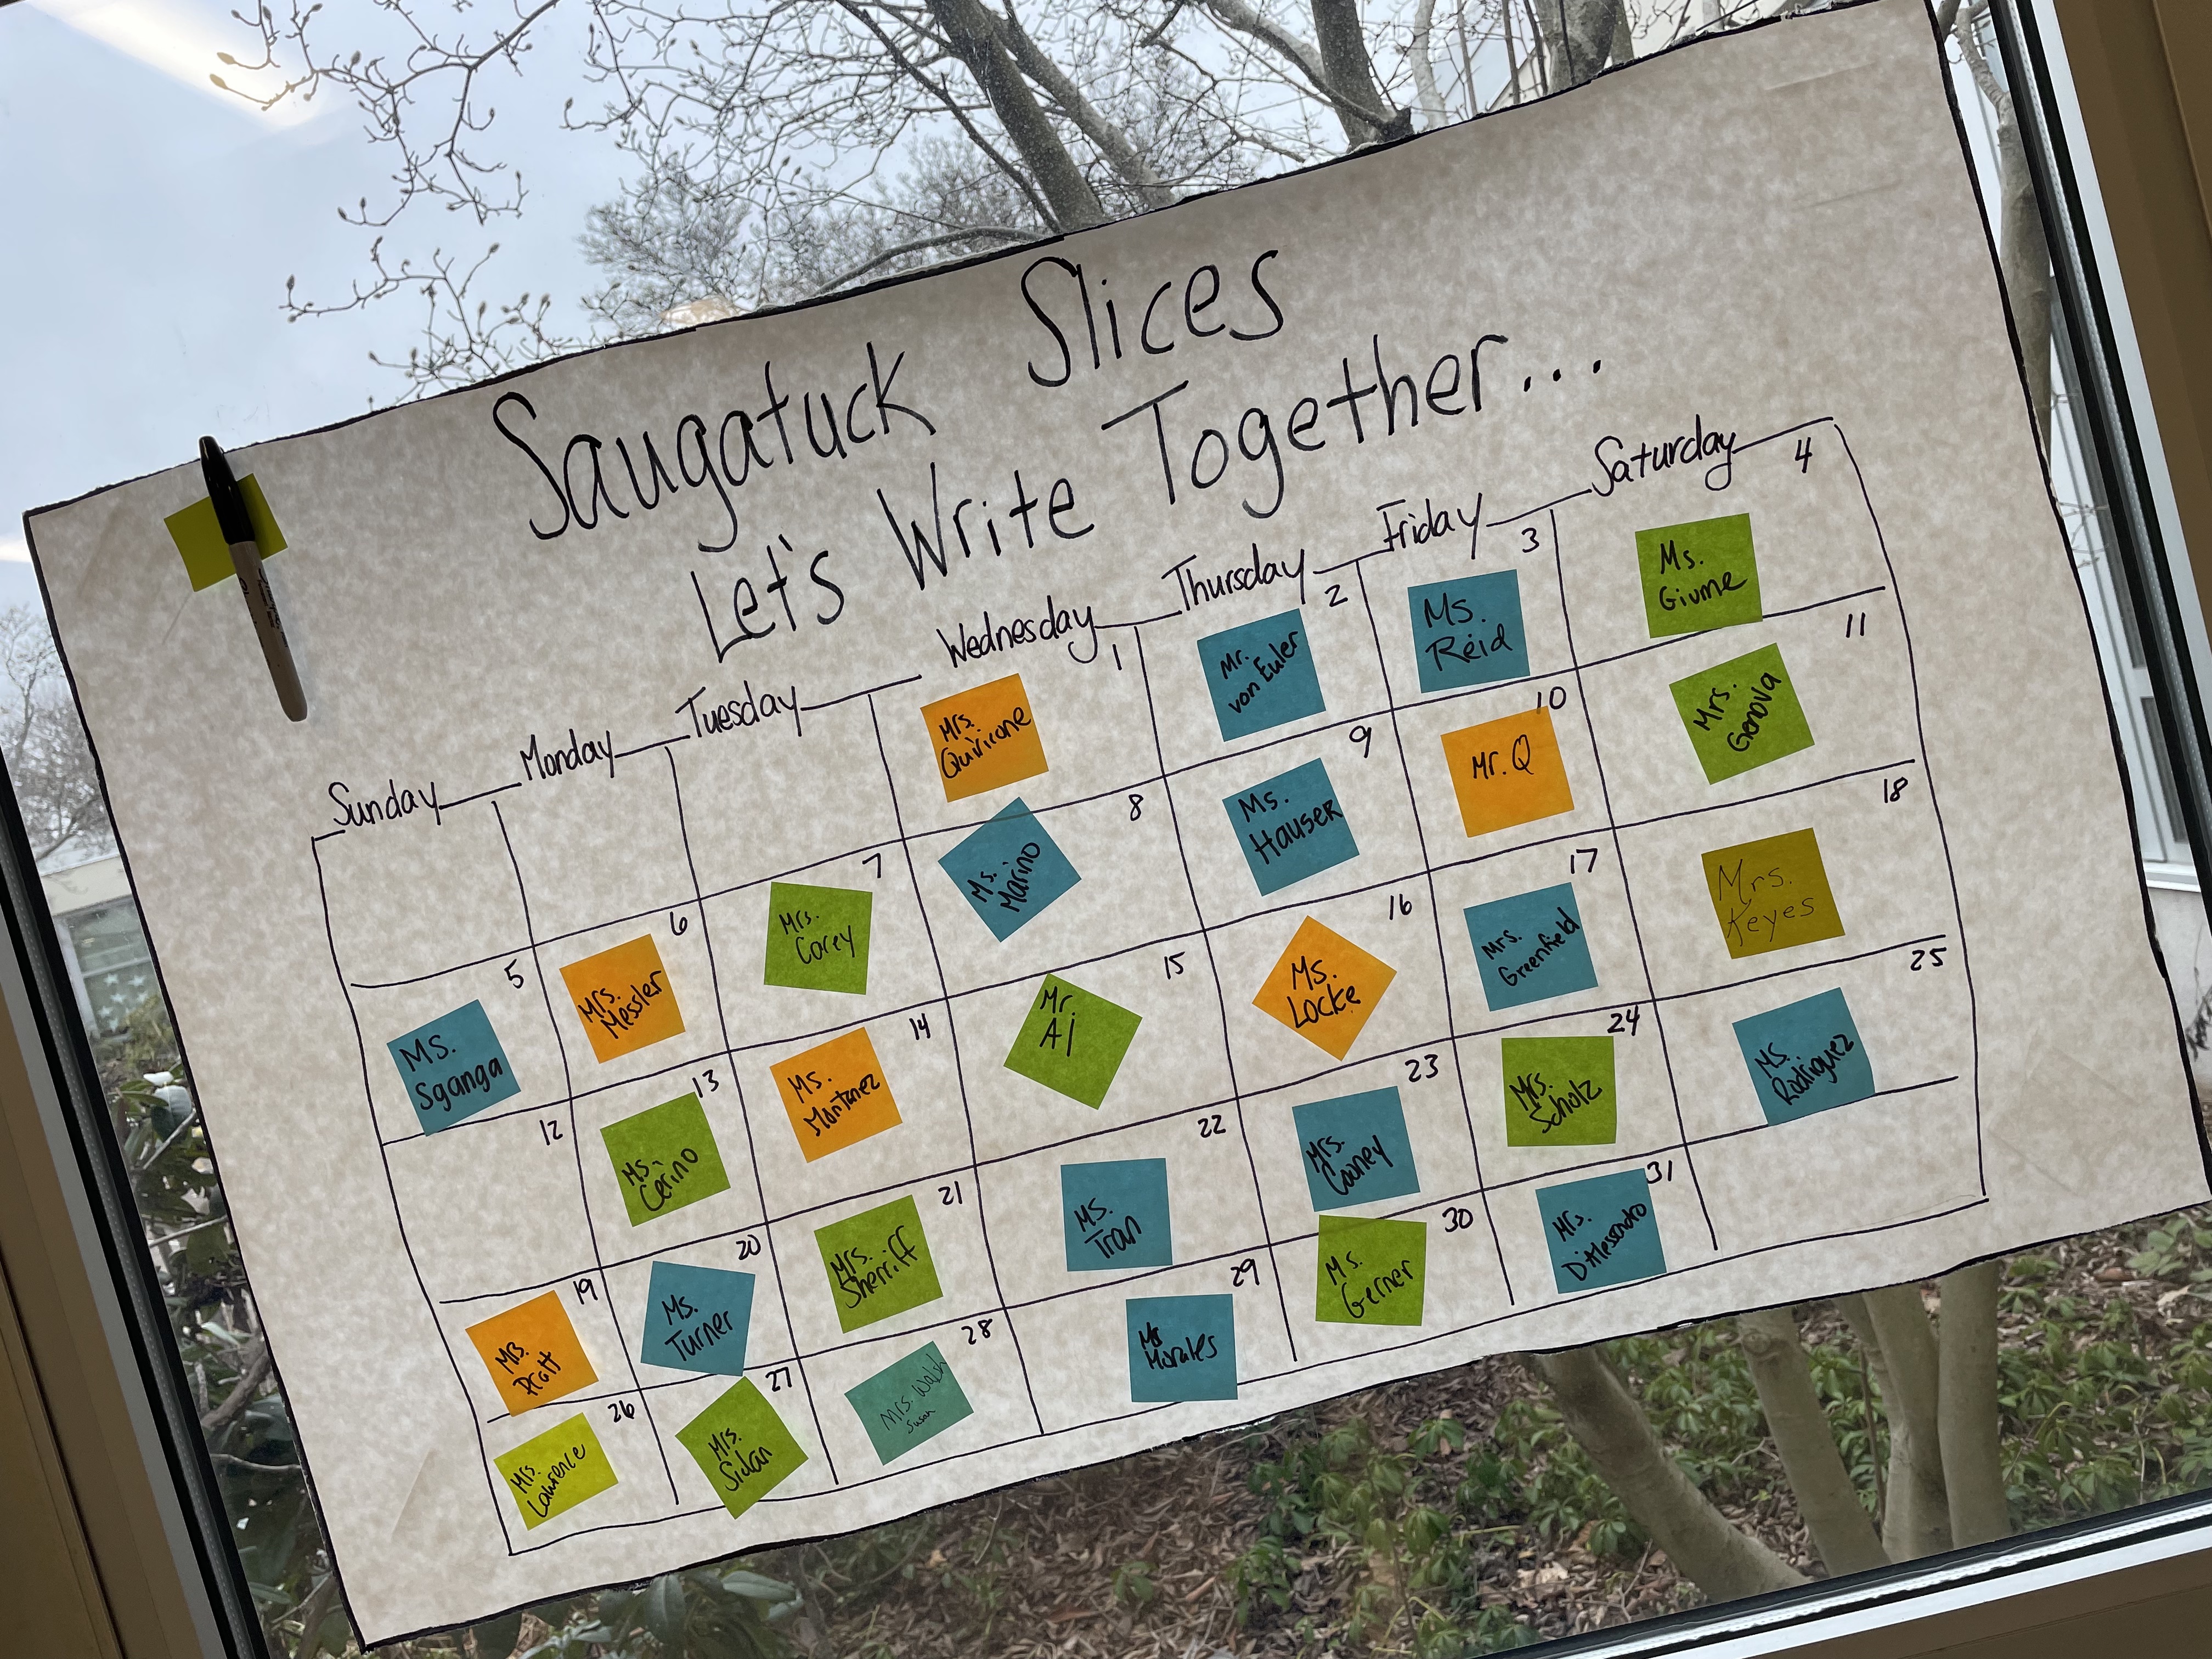 Saugatuck Slices
Let's Write Together...
Sunday Monday Tuesday Wednesday Thursday Friday Saturday
1
Mrs.
Quiricone
2
Mr.
von Euler
3
Ms.
Reid
4
Ms.
Giume
5
Ms.
Sganga
6
Mrs.
Messler
7
Mrs.
Corey
8
Ms.
Marino
9
Ms.
Hauser
10
Mr. Q
11
Mrs.
Genova
12
13
Ms.
Cerino
14
Ms.
Montanez
15
Mr.
Aj
16
Ms.
Locke
17
Mrs.
Greenfield
18
Mrs.
Keyes
19
Pratt
20
Ms.
Turner
21
Mrs.
Sherriff
22
Ms.
Tran
23
Mrs.
Cooney
24
Mrs.
Scholz
25
Ms.
Rodriguez
26
Mrs.
Lawrence
27
Mrs.
28
Mrs. Walsh
Susan
29
Morales
30
Ms.
Gerner
31
Mrs.